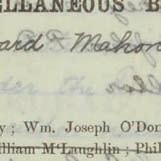 LLANEOUS B
ard & Mahon
der the
y; Wm. Joseph O'Don
illiam M'Laughlin; Phil